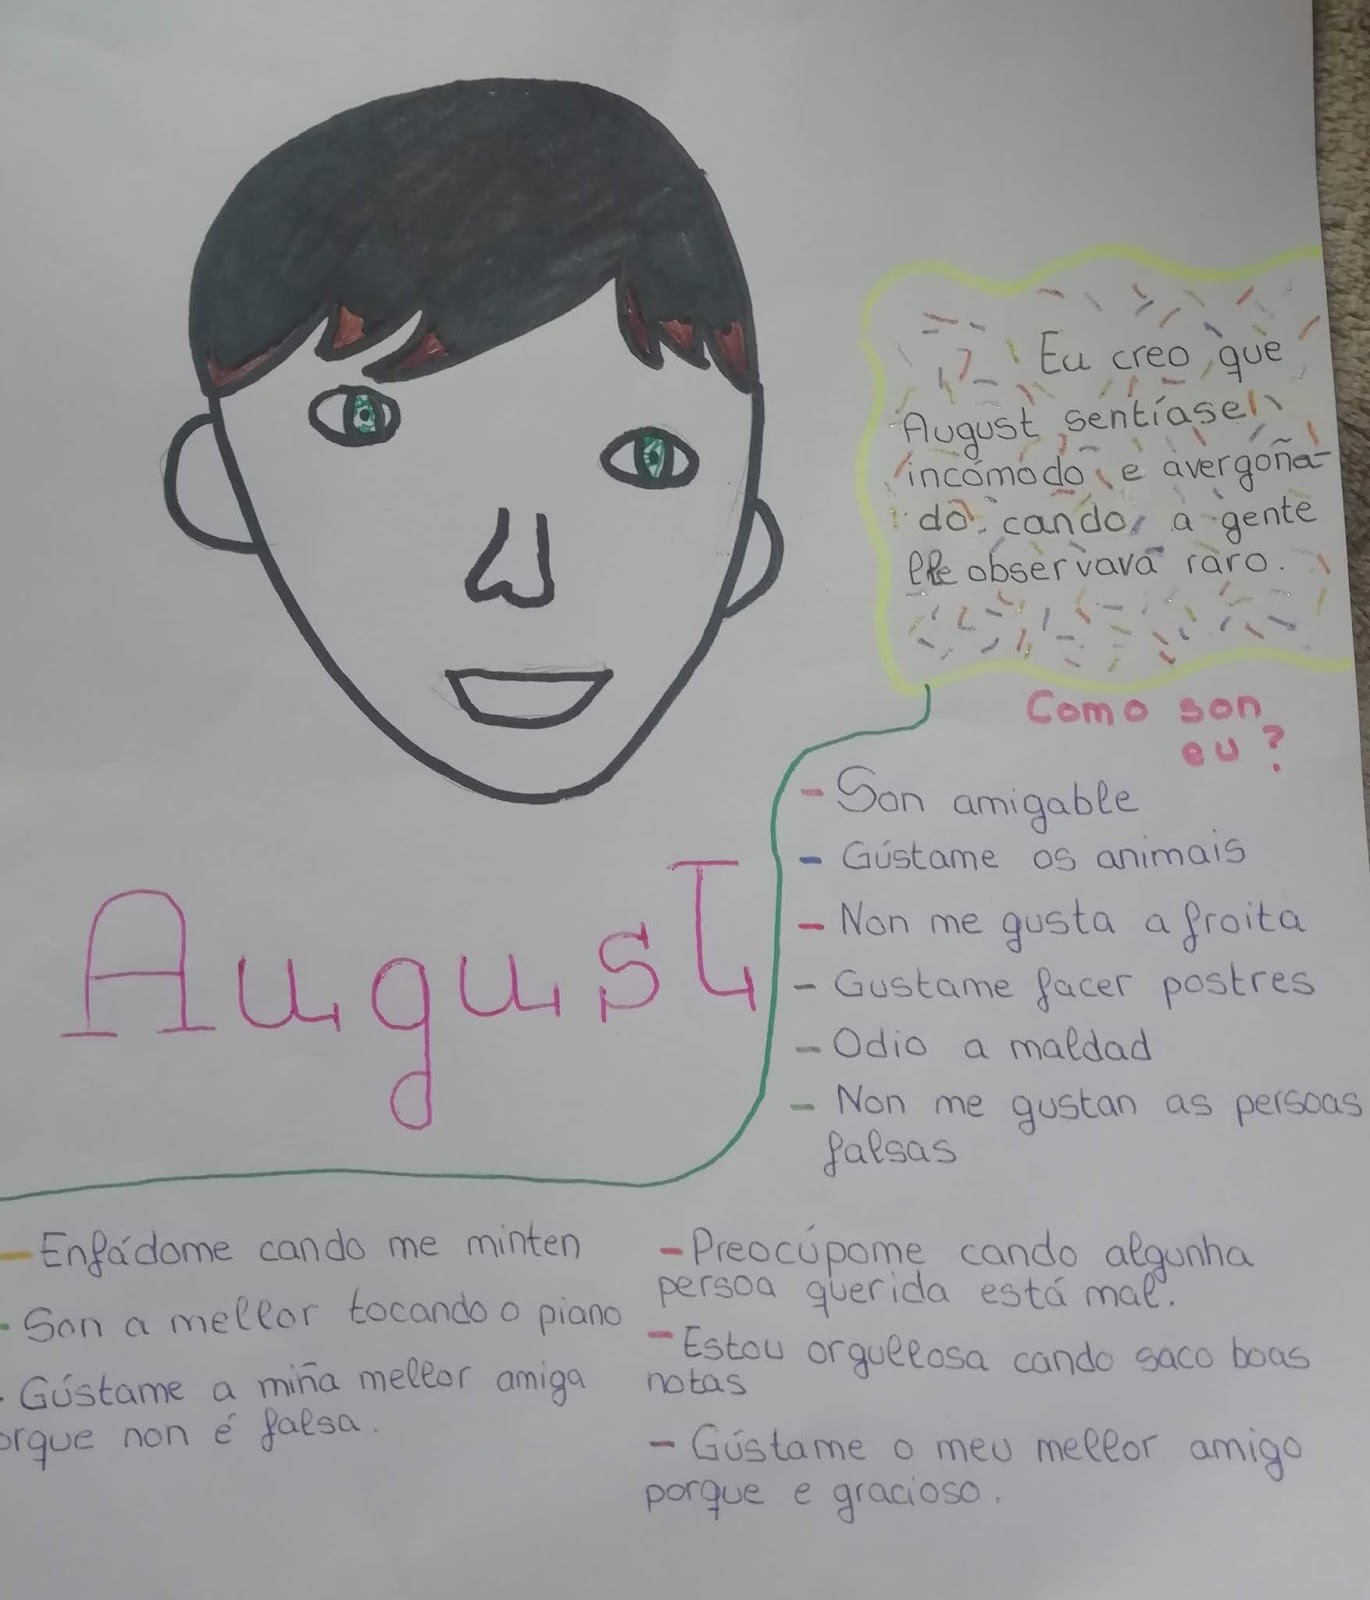 Eu creo que
August sentíase
incómodo e avergoña-
do cando a gente
lle observava raro.
Como son
eu?
- Son amigable
- Gústame os animais
- Non me gusta a froita
- Gustame facer postres
- Odio a maldad
- Non me gustan as persoas
falsas
August
- Enfádome cando me minten
- Son a mellor tocando o piano
- Gústame a miña mellor amiga
orque non é falsa.
- Preocúpome cando algunha
persoa querida está mal.
- Estou orgullosa cando saco boas
notas
- Gústame o meu mellor amigo
porque e gracioso.